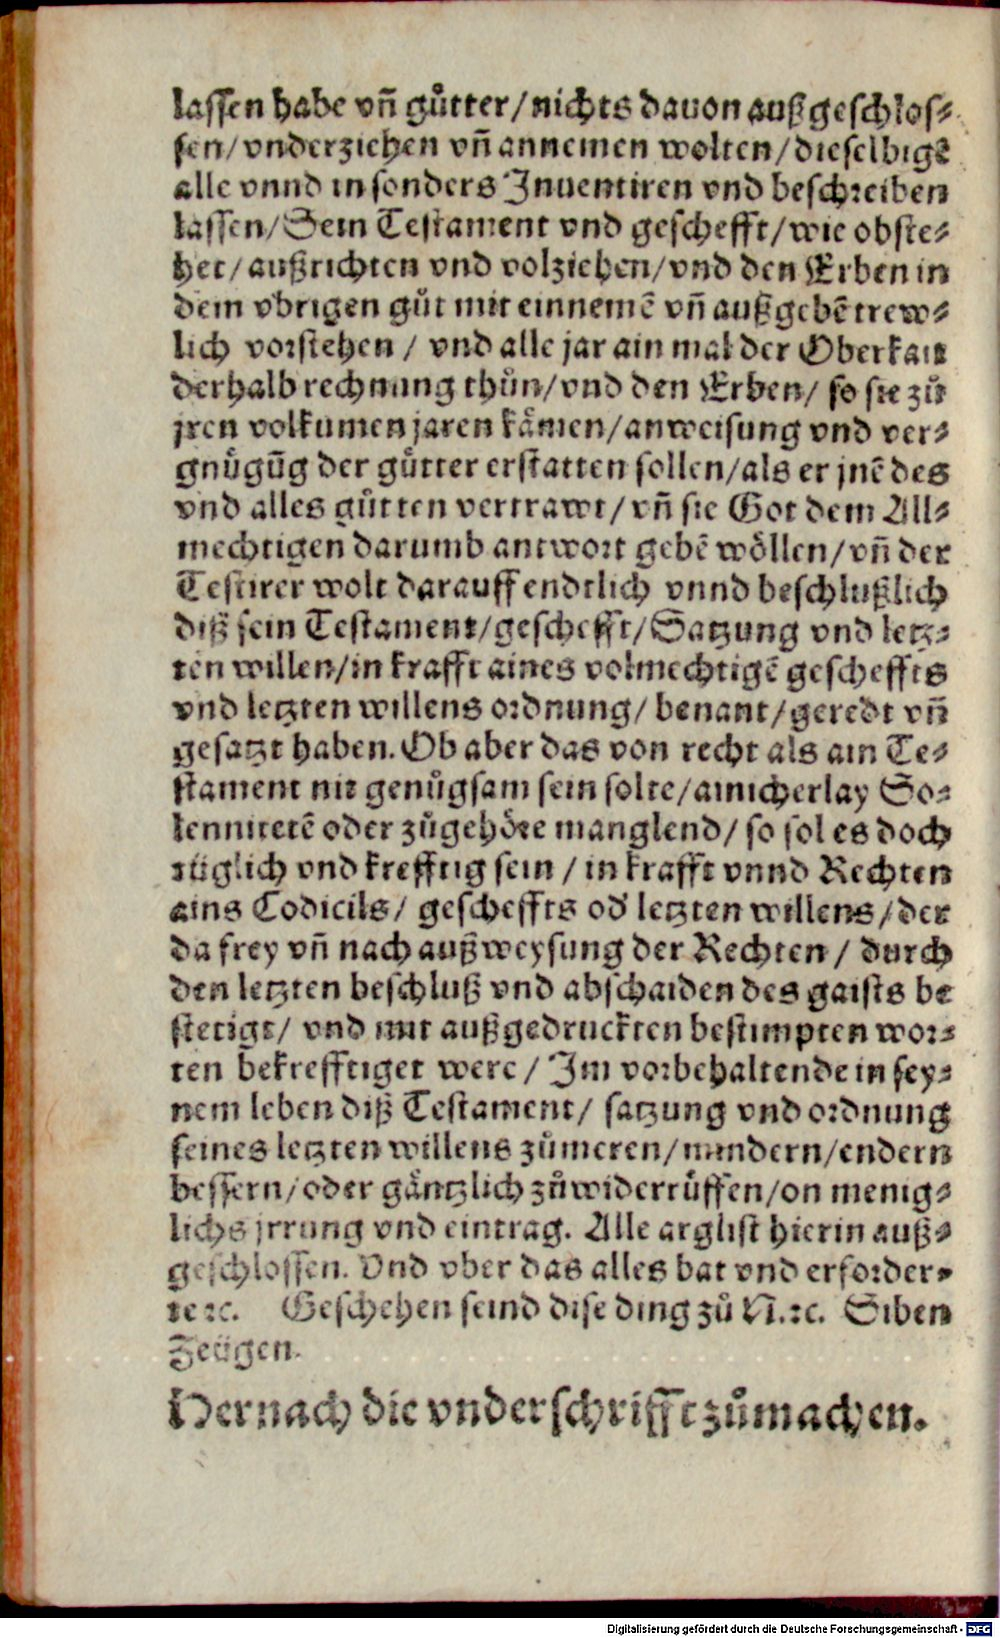 lassen habe vñ gůtter/nichts dauon außgeschlos⸗
sen/vnderziehen vñ annemen wolten/dieselbigē
alle vnnd in sonders Inuentiren vnd beschreiben
lassen/Sein Testament vnd geschefft/wie obste⸗
het/außrichten vnd volziehen/vnd den Erben in
dem vbrigen gůt mit einnemē vñ außgebē trew⸗
lich vorstehen / vnd alle jar ain mal der Oberkait
derhalb rechnung thůn/vnd den Erben/ so sie zů
jren volkumen jaren kåmen/anweisung vnd ver⸗
gnůgūg der gůtter erstatten sollen/als er jnē des
vnd alles gůtten vertrawt/vñ sie Got dem All⸗
mechtigen darumb antwort gebē wöllen/vñ der
Testirer wolt darauff endtlich vnnd beschlußlich
diß sein Testament/geschefft/Satzung vnd letz⸗
ten willen/in krafft aines volmechtigē gescheffts
vnd letzten willens ordnung/ benant/geredt vñ
gesatzt haben. Ob aber das von recht als ain Te⸗
stament nit genůgsam sein solte/ainicherlay So⸗
lenniтetē oder zůgehöre manglend/ so sol es doch
tüglich vnd krefftig sein / in krafft vnnd Rechten
ains Codicils/ gescheffts od' letzten willens/der
da frey vñ nach außweysung der Rechten/ durch
den letzten beschluß vnd abschaiden des gaists be
stetigt/ vnd mit außgedruckten bestimpten wor⸗
ten bekrefftiget were/ Im vorbehaltende in sey⸗
nem leben diß Testament/ satzung vnd ordnung
seines letzten willens zůmeren/mindern/endern
bessern/oder gäntzlich zůwiderrůffen/on menig⸗
lichs jrrung vnd eintrag. Alle arglist hierin auß⸗
geschlossen. Vnd vber das alles bat vnd erforder⸗
te ꝛc. Geschehen seind dise ding zů N.ꝛc. Siben
Zeügen.
Hernach die vnderschrifft zůmachen.
Digitalisierung gefördert durch die Deutsche Forschungsgemeinschaft - DFG